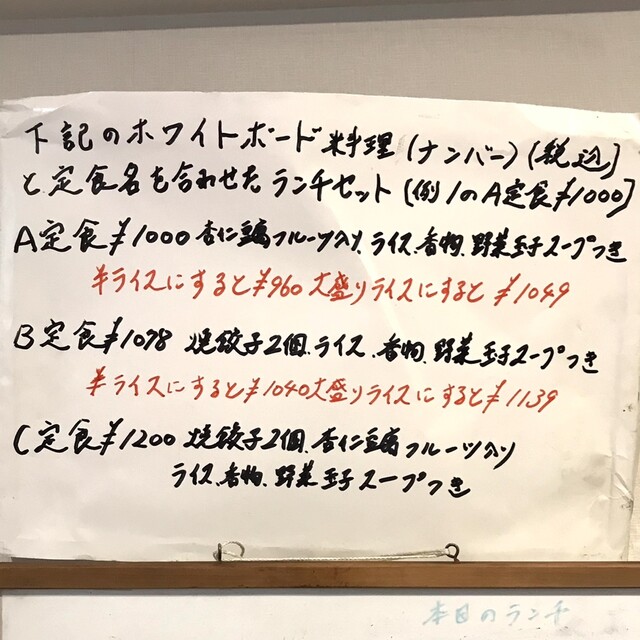 下記のホワイトボード料理(ナンバー)(税込)
と定食名を合わせたランチセット(例1のA定食¥1000)
A定食¥1000杏仁豆腐フルーツ入り、ライス、香物、野菜玉子スープつき
半ライスにすると¥960大盛りライスにすると¥1049
B定食¥1098 焼餃子2個、ライス、香物、野菜玉子スープつき
半ライスにすると¥1040大盛りライスにすると¥1139
C定食¥1200焼餃子2個、杏仁豆腐フルーツ入り
ライス、香物、野菜玉子スープつき
本日のランチ